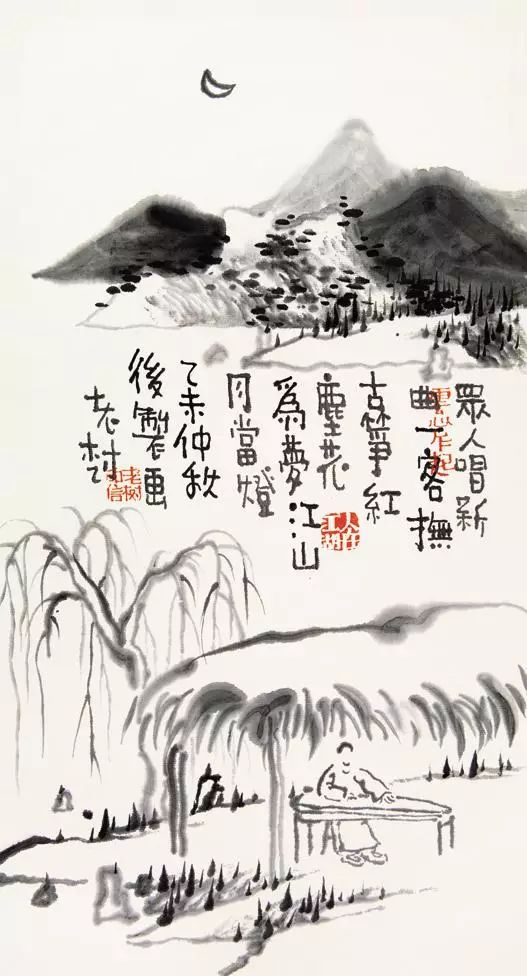 眾人唱新
曲一客撫
古箏紅
塵花
為夢江山
月當燈
乙未仲秋
後製畫
老樹
人在江湖
老树